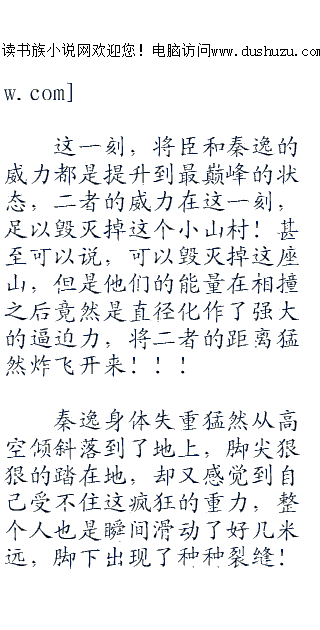 读书族小说网欢迎您！电脑访问www.dushuzu.com
w.com]
这一刻，将臣和秦逸的
威力都是提升到最巅峰的状
态，二者的威力在这一刻，
足以毁灭掉这个小山村！甚
至可以说，可以毁灭掉这座
山，但是他们的能量在相撞
之后竟然是直径化作了强大
的逼迫力，将二者的距离猛
然炸飞开来！！！
秦逸身体失重猛然从高
空倾斜落到了地上，脚尖狠
狠的踏在地，却又感觉到自
己受不住这疯狂的重力，整
个人也是瞬间滑动了好几米
远，脚下出现了种种裂缝！